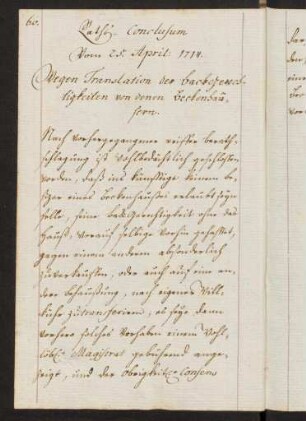 60.
Raths Conclusum
Vom 25. April. 1714.
Wegen Translation der backgerech-
tigkeiten von denen Beckenhäu-
sern.
Nach vorhergegangener reiffer berath-
schlagung ist wohlbedächtlich geschlossen
worden, daß ins künfftige keinem be-
sitzer eines Beckenhaußes erlaubt seyn
solle, seine backgerechtigkeit ohne das
hauß, worauf selbige vorhin gehafftet,
gegen einem anderen absonderlich
zuverkauffen, oder auch auf eine an-
dere behaußung, nach eigener Will-
kühr zutransferiren, es seye dann
vorhero solches vorhaben einem Wohl-
löbl. Magistrat gebührend ange-
zeigt, und der Obrigkeitl. Consens